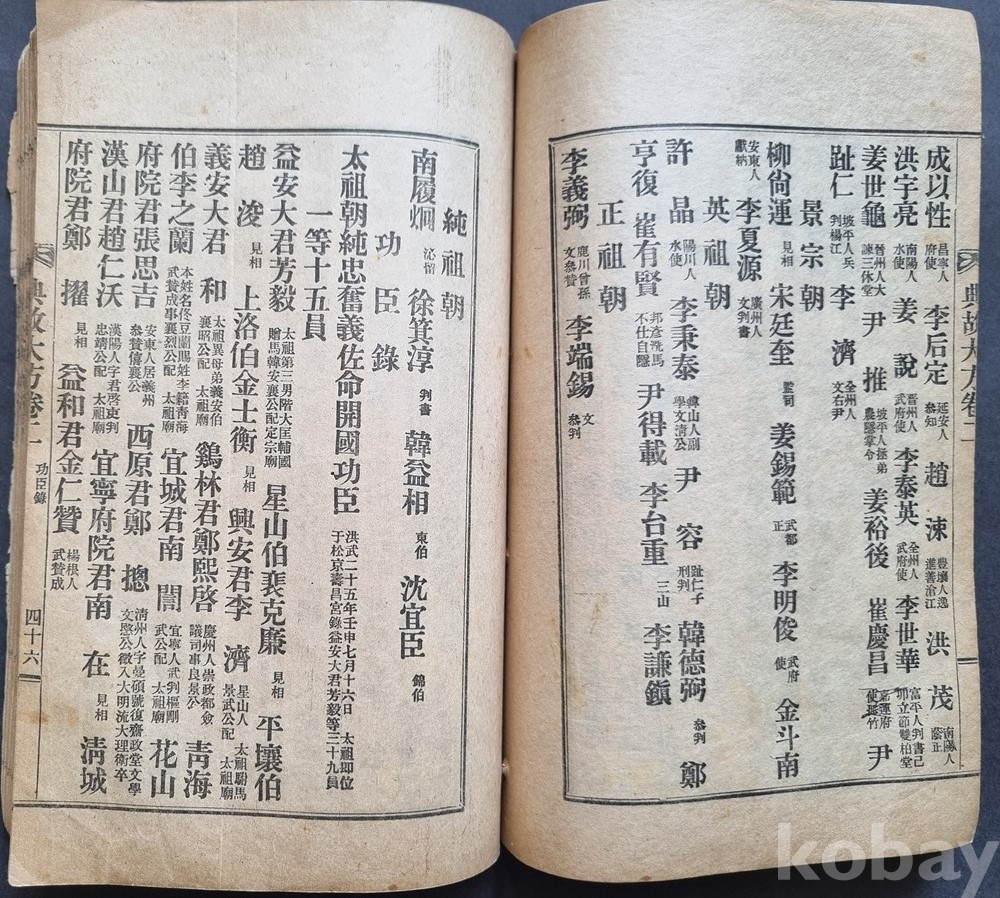 成以性 昌寧人府使 李后定 延安人參知 趙涑 豊壤人逸進善滄江 洪茂 南陽人蔭正
洪宇亮 南陽人水使 姜說 晋州人武府使 李泰英 全州人武府使 李世華 富平人判書己卯立節雙柏堂
姜世龜 晉州人大諫三休堂 尹推 坡平人拯弟農隱掌令 姜裕後 崔慶昌 尹
趾仁 坡平人兵判楊江 李濟 全州人文右尹
景宗朝
柳尙運 見相 宋廷奎 監司 姜錫範 武都正 李明俊 武府使 金斗南
安東人獻納 李夏源 廣州人文判書
英祖朝
許品 陽川人水使 李秉泰 韓山人副學文淸公 尹容 趾仁子刑判 韓德弼 參判 鄭
亨復 崔有賢 邦彥洗馬不仕自隱 尹得載 李台重 三山 李謙鎭
正祖朝
李義弼 鹿川曾孫文參贊 李端錫 文參判
純祖朝
南履炯 沁留 徐箕淳 判書 韓益相 東伯 沈宜臣 錦伯
功臣錄
太祖朝純忠奮義佐命開國功臣 洪武二十五年壬申七月十六日 太祖卽位于松京壽昌宮錄益安大君芳毅等三十九員
一等十五員
益安大君芳毅 太祖第三男階大匡輔國贈馬韓安襄公配定宗廟 星山伯裵克廉 見相 平壤伯
趙浚 見相 上洛伯金士衡 見相 興安君李濟 星山人 太祖駙馬景武公配 太祖廟
義安大君和 太祖異母弟義安伯襄昭公配 太祖廟 鷄林君鄭熙啓 慶州人崇政都僉議司事良景公 靑海
伯李之蘭 本姓名佟豆蘭賜姓李籍靑海贊成事襄烈公配 太祖廟 宜城君南誾 宜寧人武判樞剛武公配 太祖廟 花山
府院君張思吉 安東人居義州參贊僖襄公 西原君鄭摠 淸州人字曼碩號復齋政堂文學文愍公徵入大明流大理衛卒
漢山君趙仁沃 漢陽人字君啓吏判忠靖公配 太祖廟 宜寧府院君南在 見相 淸城
府院君鄭擢 見相 益和君金仁贊 楊根人武贊成
典故大方卷二 功臣錄 四十六
典故大方卷二
kobay